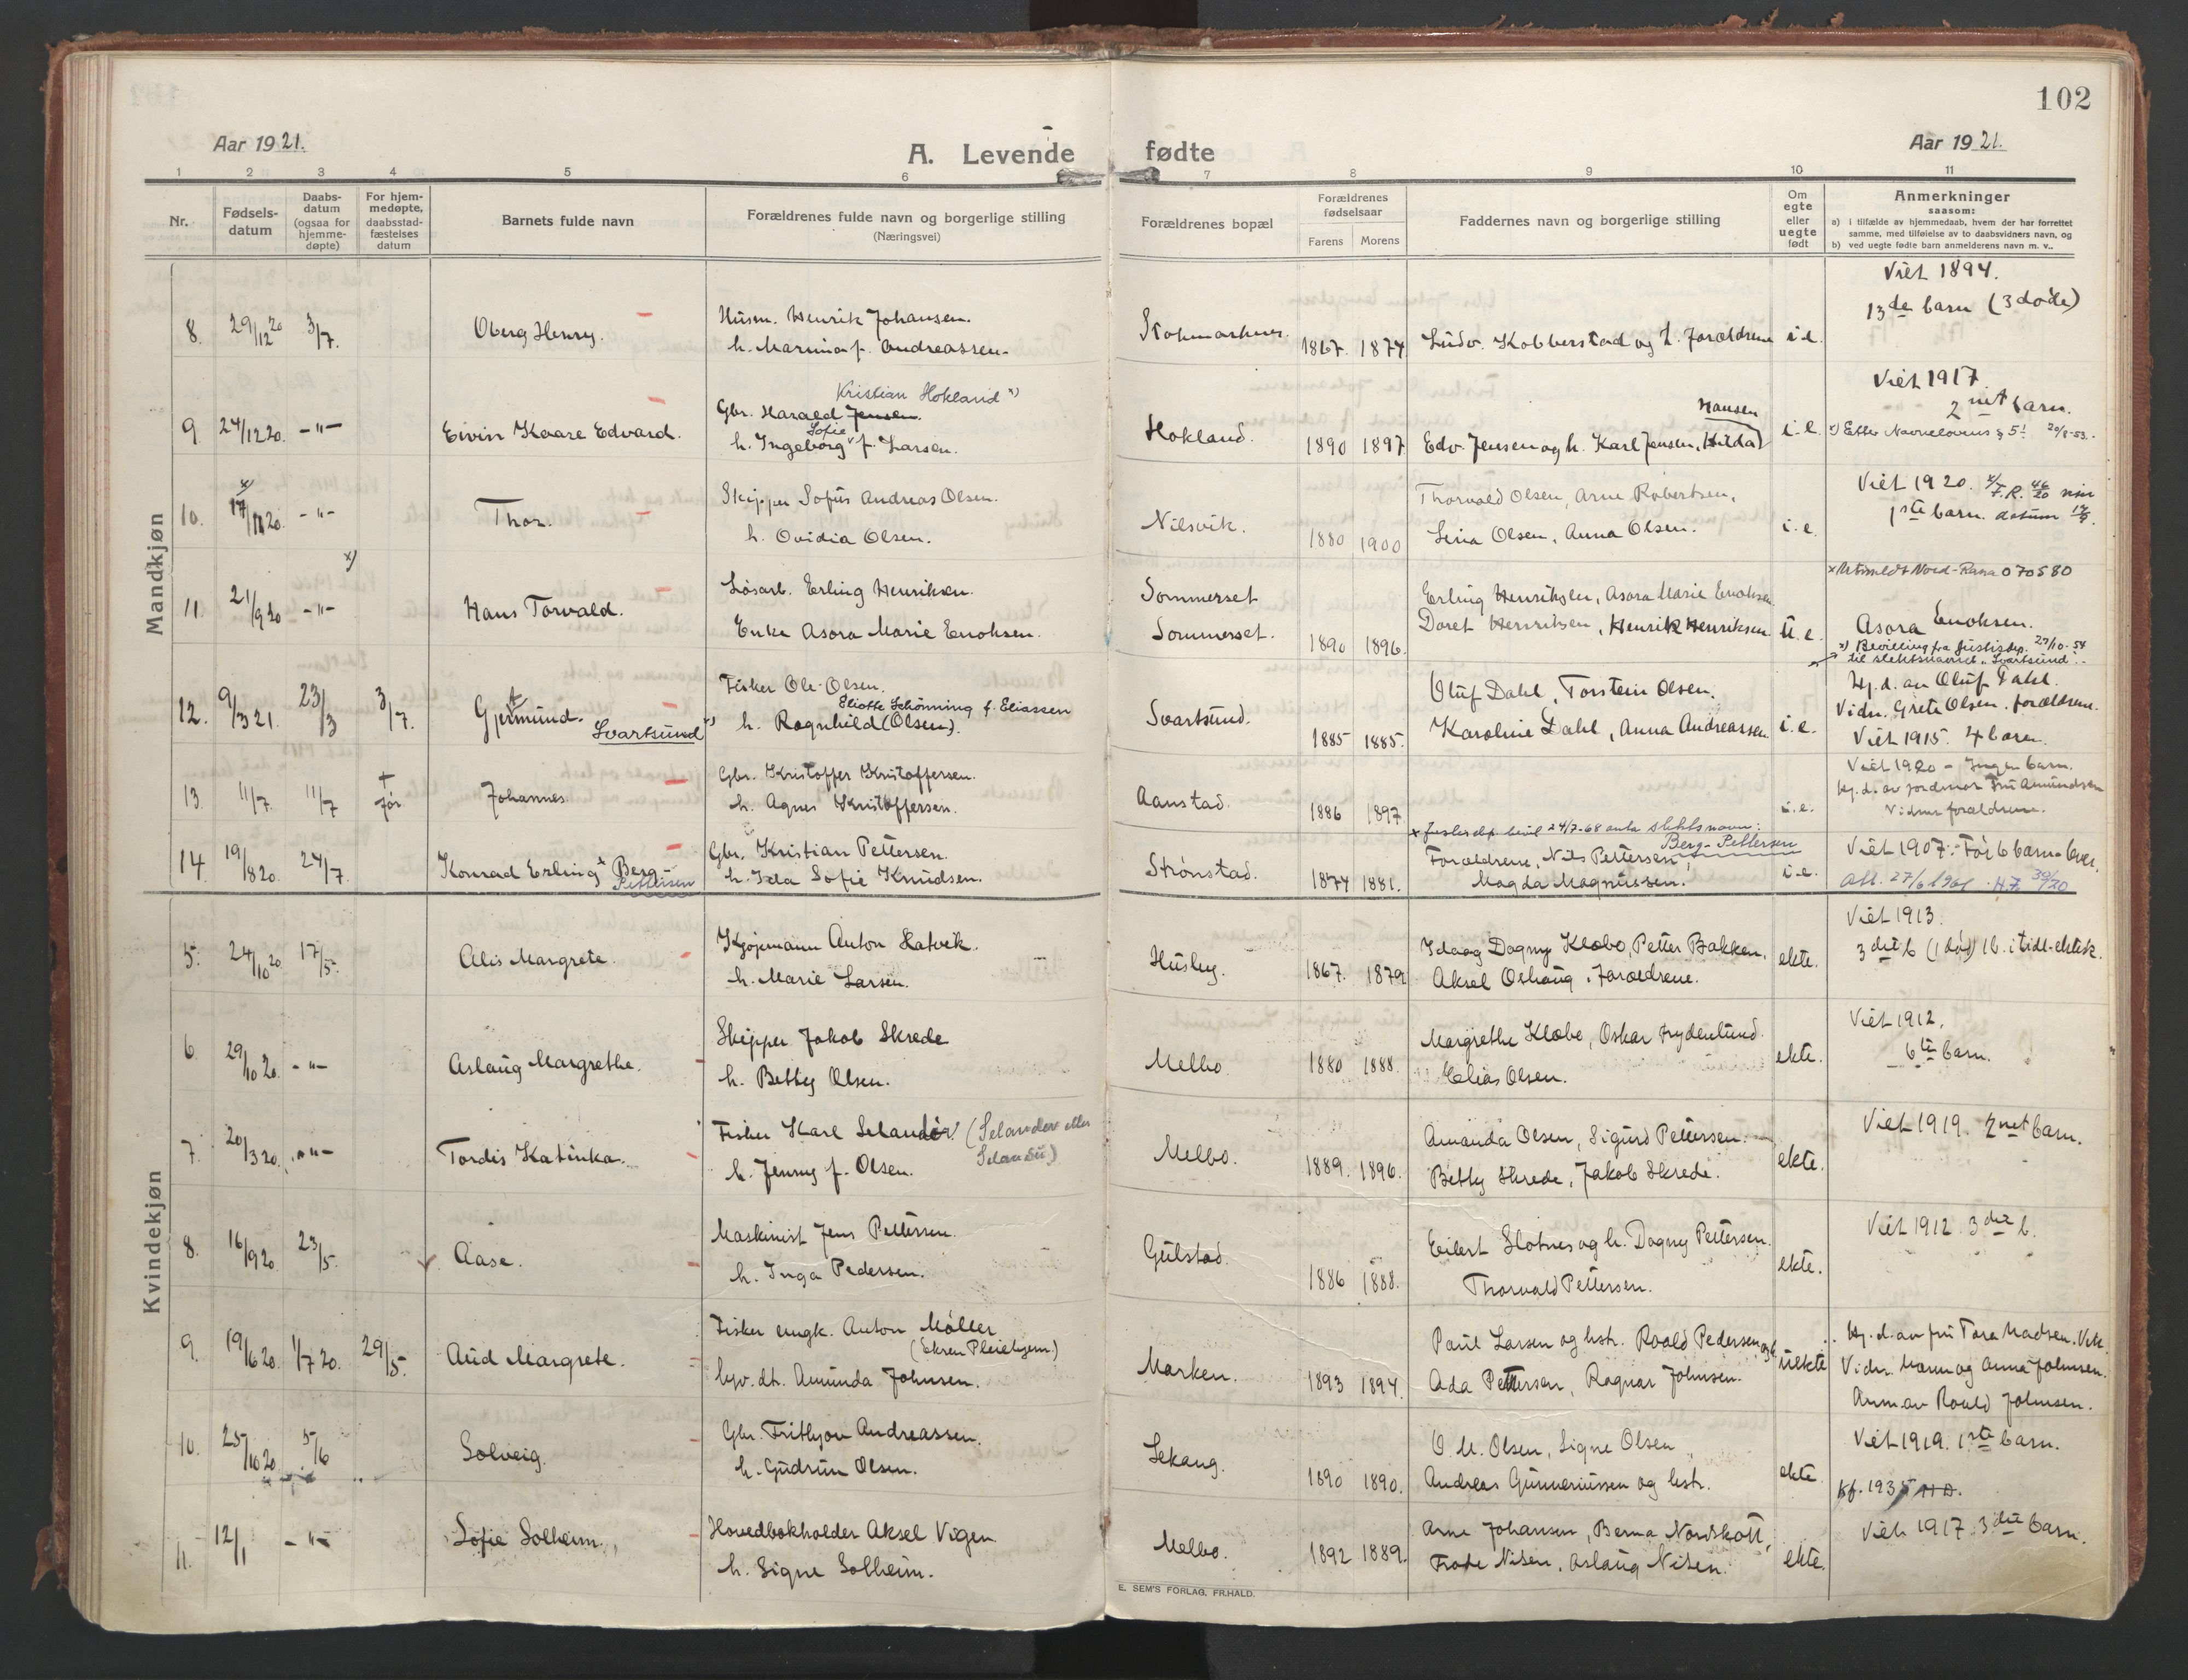 102
Aar 1921.
A. Levende fødte
Aar 1921.
1 2 3 4 5 6 7 8 9 10 11
Nr.
Fødsels-
datum
Daabs-
datum
(ogsaa for
hjemme-
døpte)
For hjem-
medøpte,
daabsstad-
fæstelses
datum
Barnets fulde navn
Forældrenes fulde navn og borgerlige stilling
(Næringsvei)
Forældrenes bopæl
Forældrenes
fødselsaar
Farens Morens
Faddernes navn og borgerlige stilling
Om
egte
eller
uegte
født
Anmerkninger
saasom:
a) i tilfælde av hjemmedaab, hvem der har forrettet
samme, med tilføielse av to daabsvidners navn, og
b) ved uegte fødte barn anmelderens navn m. v..
Mandkjøn
8. 29/12 20 3/7. Oberg Henry.
Husm. Henrik Johansen.
h. Marina f. Andreassen.
Stokmarknes. 1867. 1874
Ludv. Kobberstad og h. Forældrene i.e.
Viet 1894.
13de barn (3 døde)
9 24/12 20. -"- Eivin Kaare Edvard.
Kristian Hokland x)
Gbr. Harald Jensen.
Sofie
h. Ingeborg f. Larsen.
Hokland. 1890 1897
Hansen
Edv. Jensen og h. Karl Jensen, Hilda i.e.
Viet 1917.
2net barn.
x) Etter Navnelovens § 5! 20/8-53.
10. 17/11 20. -"- Thor.
Skipper Sofus Andreas Olsen.
h. Ovidia Olsen.
Nilsvik. 1880 1900
Thorvald Olsen, Arne Robertsen,
Lina Olsen, Anna Olsen. i.e.
Viet 1920.
1ste barn. datum
11. 21/9 20 -"- x) Hans Torvald.
Løsarb. Erling Henriksen.
Enke Asora Marie Enoksen.
Sommerset
Sommerset. 1890 1896.
Erling Henriksen, Asora Marie Enoksen
Doret Henriksen, Henrik Henriksen u.e.
x Utmeldt Nord-Rana 070580
Asora Enoksen.
x) Bevilling fra Justisdep. 27/10-54
til slektsnavnet "Svartsund".
12. 9/3 21. 23/3 3/7. Gjermund. Svartsund x)
Fisker Ole Olsen.
Eliotte Schønning f. Eliassen
h. Ragnhild (Olsen).
Svartsund. 1885 1885.
Oluf Dahl, Torstein Olsen,
Karoline Dahl, Anna Andreassen i.e.
Hj.d. av Oluf Dahl.
Vidn. Grete Olsen, forældrene.
Viet 1915. 4 barn.
13. 11/7. 11/7 + før Johannes
Gbr. Kristoffer Kristoffersen.
h. Agnes Kristoffersen.
Aanstad. 1886 1897 i.e.
Viet 1920 - Ingen barn.
Hj.d. av jordmor Fru Amundsen
Vidner forældrene.
14 19/8 20. 24/7. Konrad Erling x Berg-
Pettersen
Gbr. Kristian Pettersen.
h. Ida Sofie Knudsen.
Strønstad. 1874 1881.
x Justisdep. bevil 24/7-68 anta slektsnavn:
Berg-Pettersen
Forældrene, Nils Pettersen,
Magda Magnussen. i.e.
Viet 1907. Før 6 barn
Att. 27/6 1961
Kvindekjøn
5. 24/10 20. 17/5. Alis Margrete.
Kjøpmann Anton Hatvik.
h. Marie Larsen.
Husby. 1867. 1879
Ida og Dagny Klæbo, Petter Bakken,
Aksel Oshaug, Forældrene. ekte.
Viet 1913.
3die b (1 død) 1 b. i tidl. ektsk.
6. 29/10 20. -"- Aslaug Margrethe.
Skipper Jakob Skrede
h. Betty Olsen.
Melbo. 1880 1888.
Margrethe Klæbo, Oskar Frydenlund.
Elias Olsen. ekte.
Viet 1912.
6te barn.
7. 20/3 20. -"- Tordis Katinka.
Fisker Karl Selander (Selander eller
h. Jenny f. Olsen.
Melbo. 1889. 1896.
Amanda Olsen, Sigurd Pettersen.
Betty Skrede, Jakob Skrede. ekte.
Viet 1919. 2net barn.
8. 16/9 20. 23/5. Aase.
Maskinist Jens Pettersen.
h. Inga Pedersen.
Gulstad. 1886 1888.
Eilert Slotnes og h. Dagny Pettersen.
Thorvald Pettersen. ekte.
Viet 1912. 3die b.
9. 19/6 20. 1/7 20. 29/5. Aud Margrete.
Fisker ungk. Anton Møller
(Ekren Pleiehjem)
Amunda Johnsen.
Marken. 1893 1894.
Paul Larsen og hstr. Roald Pedersen og h.
Ada Pettersen, Ragnar Johnsen. uekte
Hj.d. av fru Tora Madsen. Vik.
Vidn. Marn og Anna Johnsen.
Anm av Roald Johnsen.
10. 25/10 20 5/6 Solveig.
Gbr. Frithjov Andreassen.
h. Gudrun Olsen.
Lekang. 1890 1890.
O. M. Olsen, Signe Olsen
Andreas Gunneriussen og hstr. ekte.
Viet 1919. 1ste barn.
Kf. 1935
11. 12/1 -"- Sofie Solheim.
Hovedbokholder Aksel Vigen
h. Signe Solheim.
Melbo. 1892 1889.
Arne Johansen, Berna Nordskott,
Frode Nilsen, Aslaug Nilsen. ekte.
Viet 1917. 3die barn.
E. SEM'S FORLAG, FR.HALD.